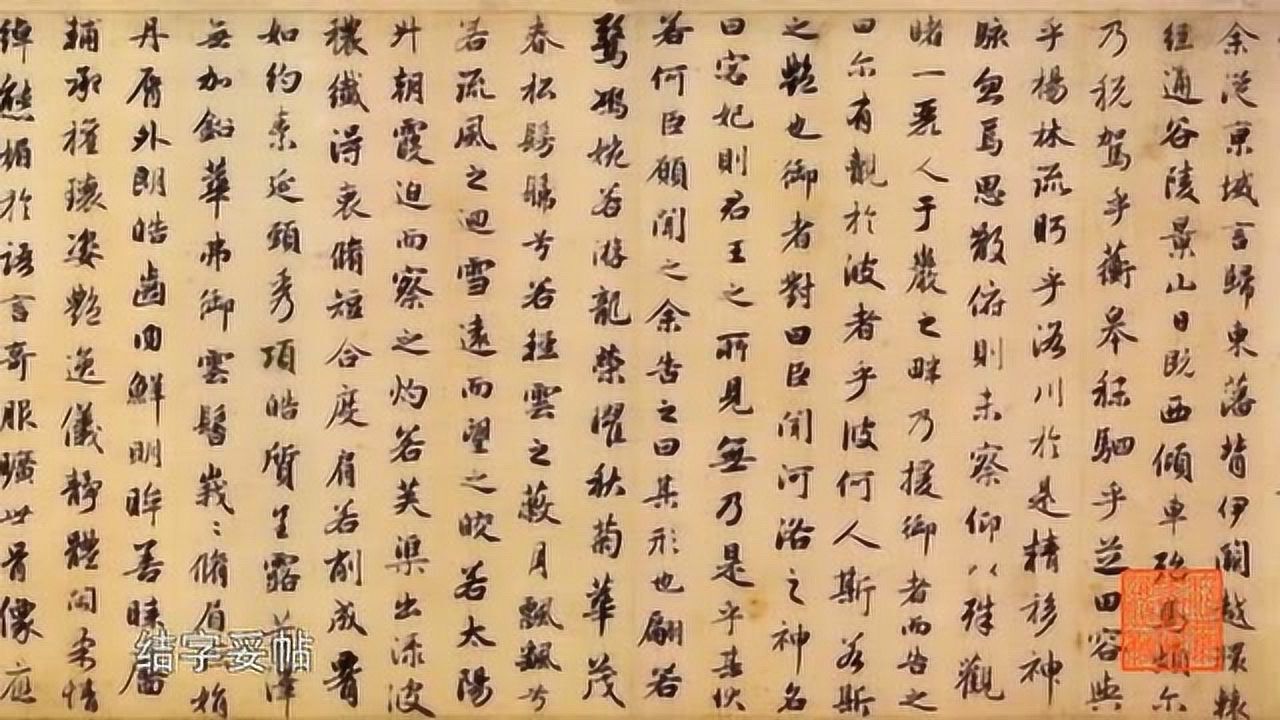 余從京域言歸東藩背伊闕越轘轅
經通谷陵景山日既西傾車殆馬煩尒
乃税駕乎蘅皋秣駟乎芝田容與
乎楊林流眄乎洛川於是精移神
駭忽焉思散俯則未察仰以殊觀
睹一麗人于巖之畔乃援御者而告之
曰尒有覿於彼者乎彼何人斯若斯
之艷也御者對曰臣聞河洛之神名
曰宓妃則君王之所見無乃是乎其状
若何臣願聞之余告之曰其形也翩若
驚鴻婉若游龍榮曜秋菊華茂
春松髣髴兮若輕雲之蔽月飄飖兮
若流風之迴雪遠而望之皎若太陽
升朝霞迫而察之灼若芙渠出淥波
穠纖得衷脩短合度肩若削成署
如約素延頸秀項皓質呈露芳澤
無加鉛華弗御雲髻峩〻脩眉聯娟
丹脣外朗皓齒内鮮明眸善睞靨
輔承權瓌姿艷逸儀靜體閑柔情
綽態媚於語言奇服曠世骨像應
结字妥帖